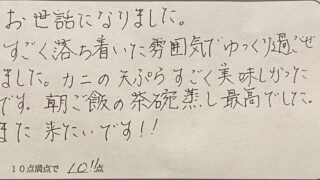 お世話になりました。
すごく落ち着いた雰囲気でゆっくり過ごせ
ました。カニの天ぷらすごく美味しかった
です。朝ご飯の茶碗蒸し最高でした。
また 来たいです!!
10点満点で 10!!点